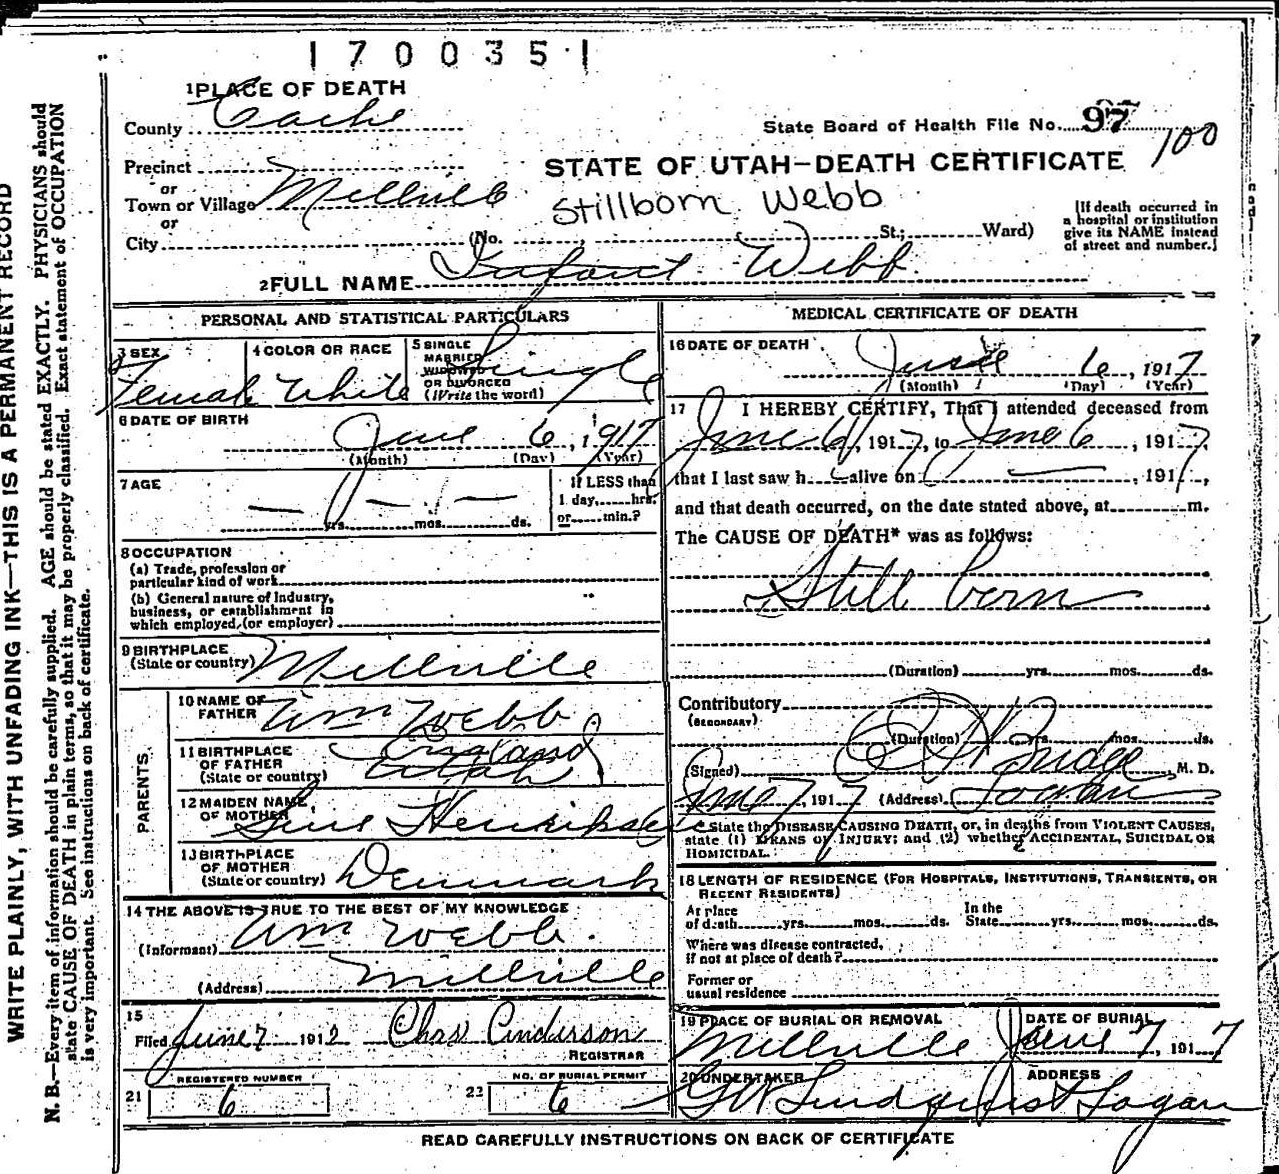 1700351
1 PLACE OF DEATH
County Cache
State Board of Health File No. 97
100
Precinct
STATE OF UTAH—DEATH CERTIFICATE
or
Town or Village Millville
Stillborn Webb
or
City (No. St.; Ward)
[If death occurred in
a hospital or institution
give its NAME instead
of street and number.]
2 FULL NAME Infant Webb
PERSONAL AND STATISTICAL PARTICULARS
3 SEX Female
4 COLOR OR RACE White
5 SINGLE
MARRIED
WIDOWED
OR DIVORCED
(Write the word) Single
6 DATE OF BIRTH
June 6, 1917
(Month) (Day) (Year)
7 AGE
yrs. mos. ds.
If LESS than
1 day, hrs.
or min.?
8 OCCUPATION
(a) Trade, profession or
particular kind of work
(b) General nature of Industry,
business, or establishment in
which employed (or employer)
9 BIRTHPLACE
(State or country) Millville
PARENTS
10 NAME OF
FATHER Wm Webb
11 BIRTHPLACE
OF FATHER England
(State or country) Utah
12 MAIDEN NAME
OF MOTHER Sine Henriksen
13 BIRTHPLACE
OF MOTHER
(State or country) Denmark
14 THE ABOVE IS TRUE TO THE BEST OF MY KNOWLEDGE
(Informant) Wm Webb.
(Address) Millville
15
Filed June 7 1912 Chas Anderson
REGISTRAR
21 REGISTERED NUMBER 6
22 NO. OF BURIAL PERMIT 6
MEDICAL CERTIFICATE OF DEATH
16 DATE OF DEATH
June 6, 1917
(Month) (Day) (Year)
17 I HEREBY CERTIFY, That I attended deceased from
June 6, 1917, to June 6, 1917,
that I last saw h alive on , 191 ,
and that death occurred, on the date stated above, at m.
The CAUSE OF DEATH* was as follows:
Still born
(Duration) yrs. mos. ds.
Contributory
(SECONDARY)
(Duration) yrs. mos. ds.
(Signed) Budge M. D.
June 7, 1917 (Address) Logan
State the DISEASE CAUSING DEATH, or, in deaths from VIOLENT CAUSES,
state (1) MEANS OF INJURY; and (2) whether ACCIDENTAL, SUICIDAL OR
HOMICIDAL.
18 LENGTH OF RESIDENCE (FOR HOSPITALS, INSTITUTIONS, TRANSIENTS, OR
RECENT RESIDENTS)
At place
of death yrs. mos. ds.
In the
State yrs. mos. ds.
Where was disease contracted,
if not at place of death?
Former or
usual residence
19 PLACE OF BURIAL OR REMOVAL
Millville
DATE OF BURIAL
June 7, 1917
20 UNDERTAKER
G W Lindquist
ADDRESS
Logan
READ CAREFULLY INSTRUCTIONS ON BACK OF CERTIFICATE
WRITE PLAINLY, WITH UNFADING INK—THIS IS A PERMANENT RECORD
N. B.—Every item of information should be carefully supplied. AGE should be stated EXACTLY. PHYSICIANS should
state CAUSE OF DEATH in plain terms, so that it may be properly classified. Exact statement of OCCUPATION
is very important. See instructions on back of certificate.